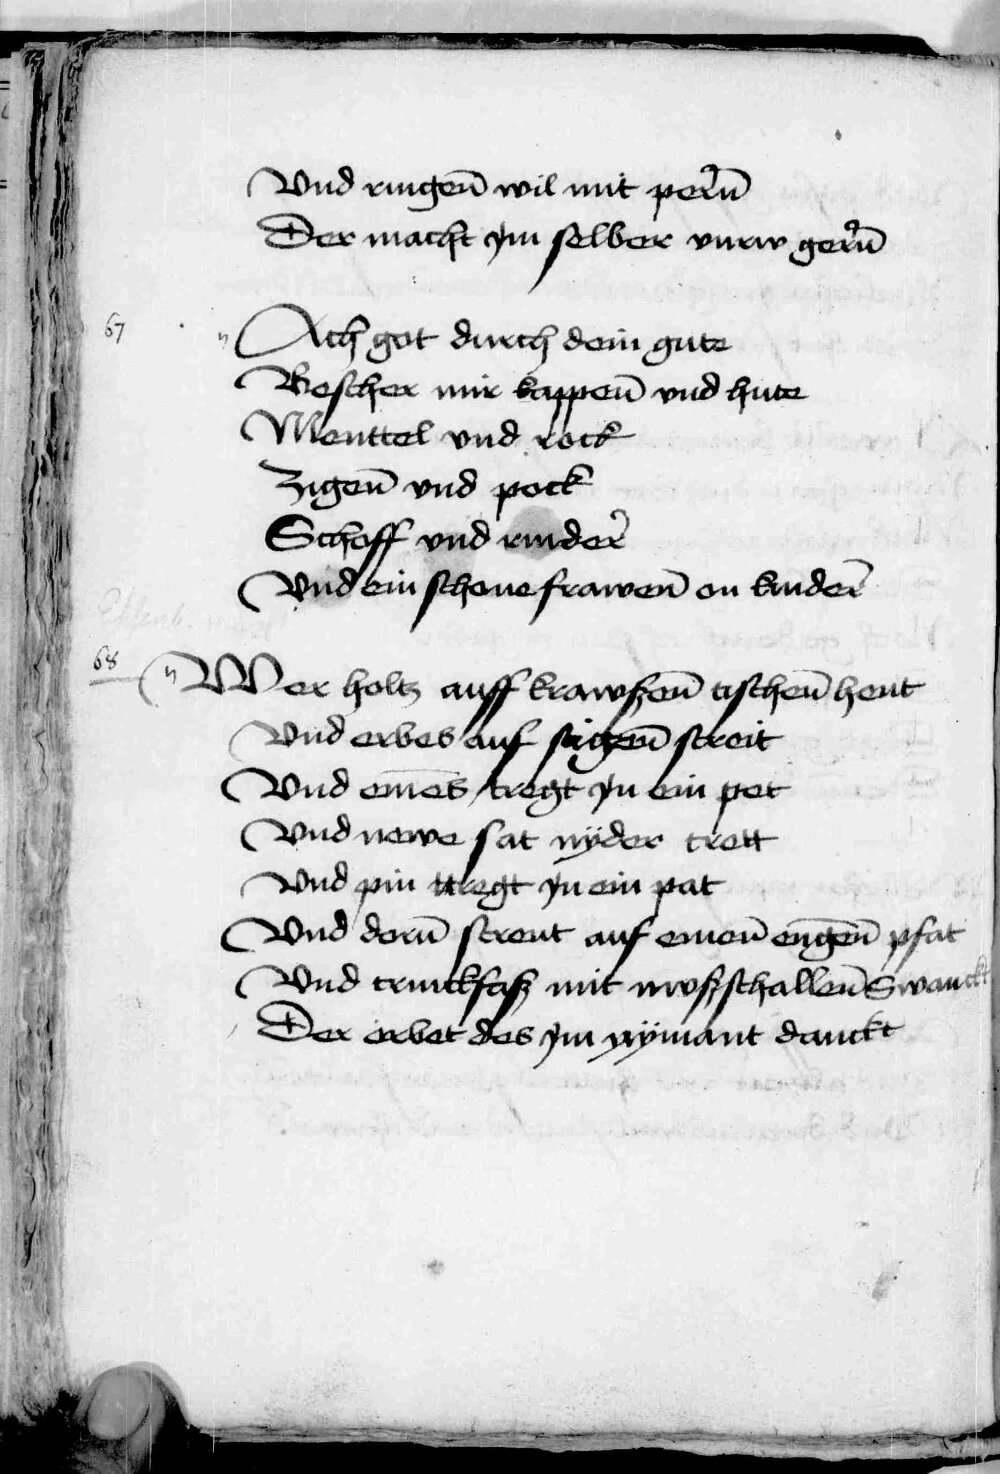 Vnd ringen̄ wil mit per̄n
Der macht Jm selber vnrw ger̄n
67 Ach got durch dein gute
Bescher mir kappen̄ vnd hute
Menttel vnd rock
Zigen̄ vnd pock
Schoff vnd rinder̄
Vnd ein schone frawen̄ on kinder̄
68 Wer holtz auff krawßen̄ tischen̄ heut
Vnd erbes auf stigen̄ streit
Vnd em̄es tregt Jn ein pet
Vnd newe sat nyder trett
Vnd pin ttregt Jn ein pat
Vnd dorn̄ streut auf einen̄ engen̄ pfat
Vnd trinckfaß mit nwßschallen̄ Swanckt
Der erbet des Jm nymant danckt